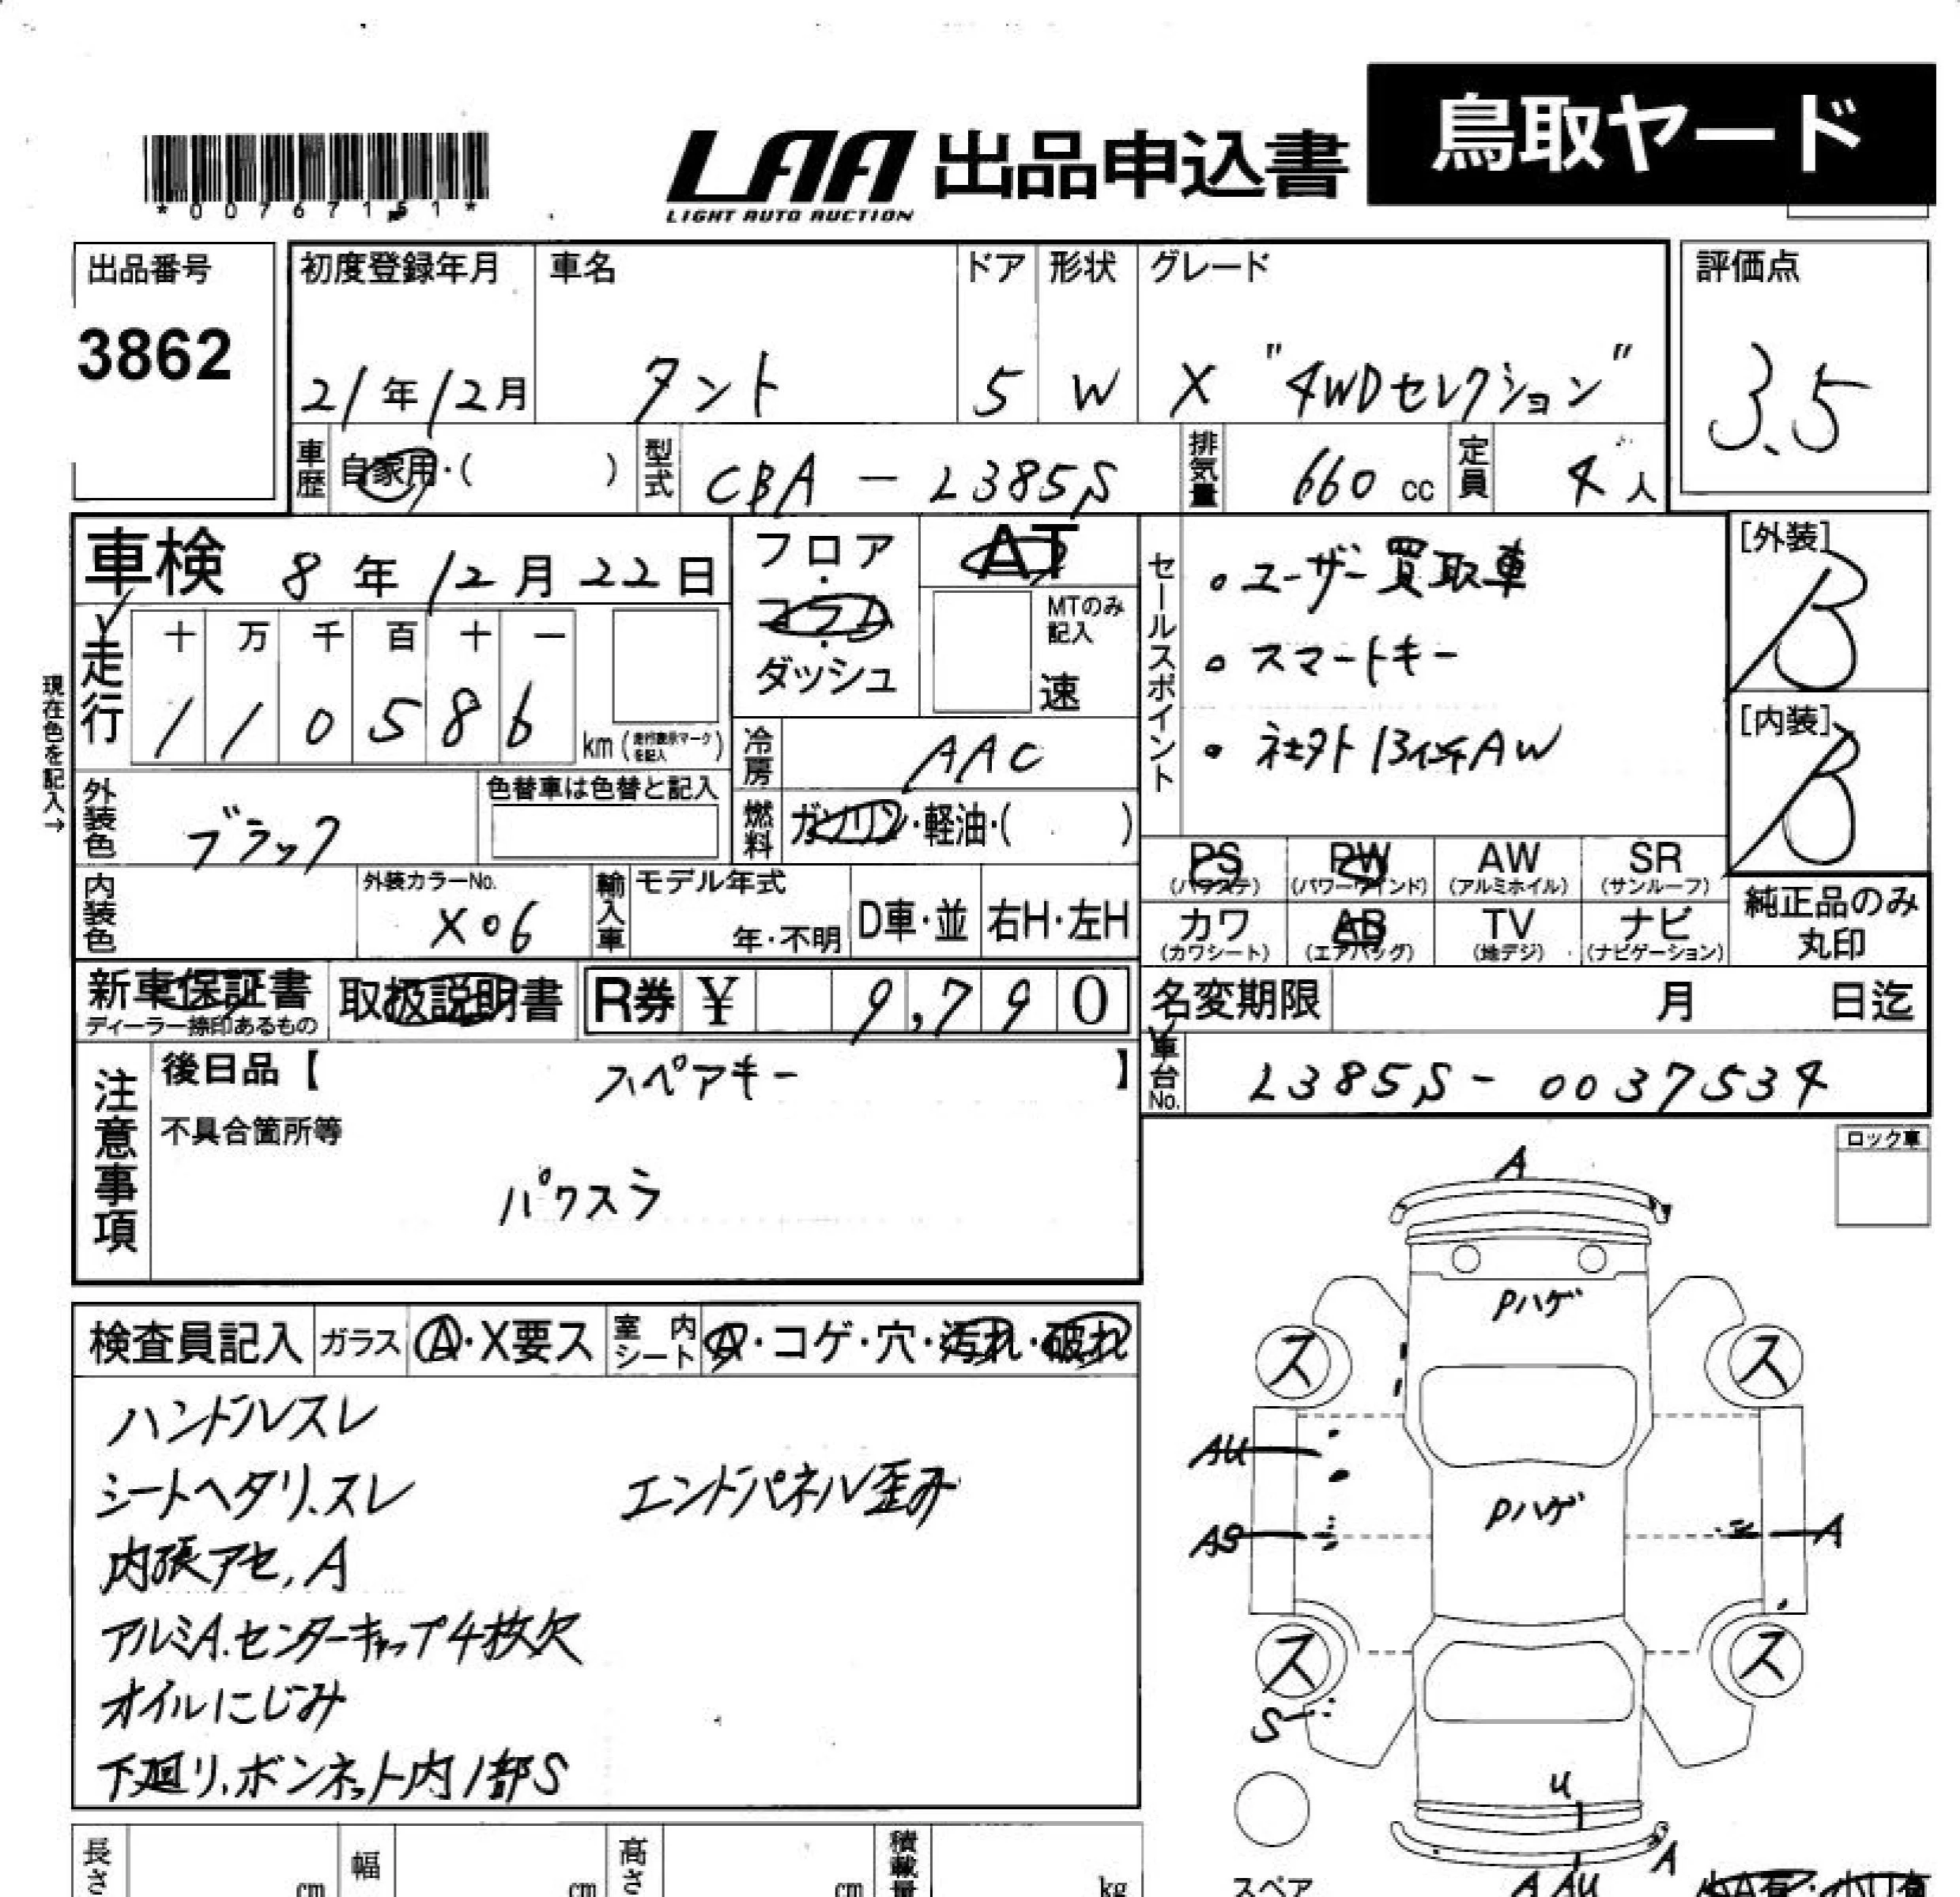 鳥取ヤード
LAA 出品申込書
LIGHT AUTO AUCTION
*00767151*
出品番号
3862
初度登録年月
21年12月
車名
タント
ドア
5
形状
W
グレード
X "4WDセレクション"
評価点
3.5
車歴
自家用・( )
型式
CBA-L385S
排気量
660 cc
定員
4人
車検 8年12月22日
フロア・コラム・ダッシュ
AT
MTのみ記入
速
セールスポイント
・ユーザー買取車
・スマートキー
・社外13インチAW
[外装]
B
[内装]
B
現在色を記入→
走行
十 万 千 百 十 一
1 1 0 5 8 6
km (走行表示マークを記入)
冷房
AAC
外装色
ブラック
色替車は色替と記入
燃料
ガソリン・軽油・( )
内装色
外装カラーNo.
X06
輸入車
モデル年式
年・不明
D車・並
右H・左H
PS
(パワステ)
PW
(パワーウインド)
AW
(アルミホイル)
SR
(サンルーフ)
カワ
(カワシート)
AB
(エアバッグ)
TV
(地デジ)
ナビ
(ナビゲーション)
純正品のみ
丸印
新車保証書
ディーラー捺印あるもの
取扱説明書
R券 ¥ 9,790
名変期限 月 日迄
車台No.
L385S-0037534
注意事項
後日品【 スペアキー 】
不具合箇所等
パワスラ
ロック車
検査員記入
ガラス
A・X要ス
室内シート
A・コゲ・穴・汚れ・破れ
ハンドルスレ
シートヘタリ.スレ エンドパネル歪み
内張アセ,A
アルミA.センターキャップ4枚欠
オイルにじみ
下廻リ.ボンネット内1部S
A
Pハゲ
ス
ス
AU
Pハゲ
AS
A
ス
ス
S
U
A
A AU
スペア
長さ
cm
幅
cm
高さ
cm
積載量
kg